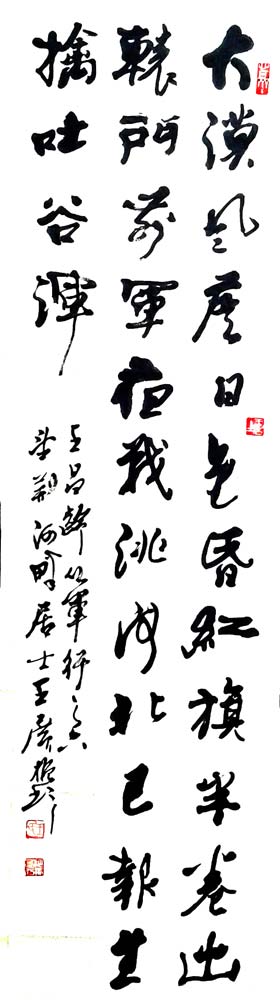 大漠風塵日色昏紅旗半卷出
轅門前軍夜戰洮河北已報生
擒吐谷渾
王昌齡從軍行之六
河畔居士王